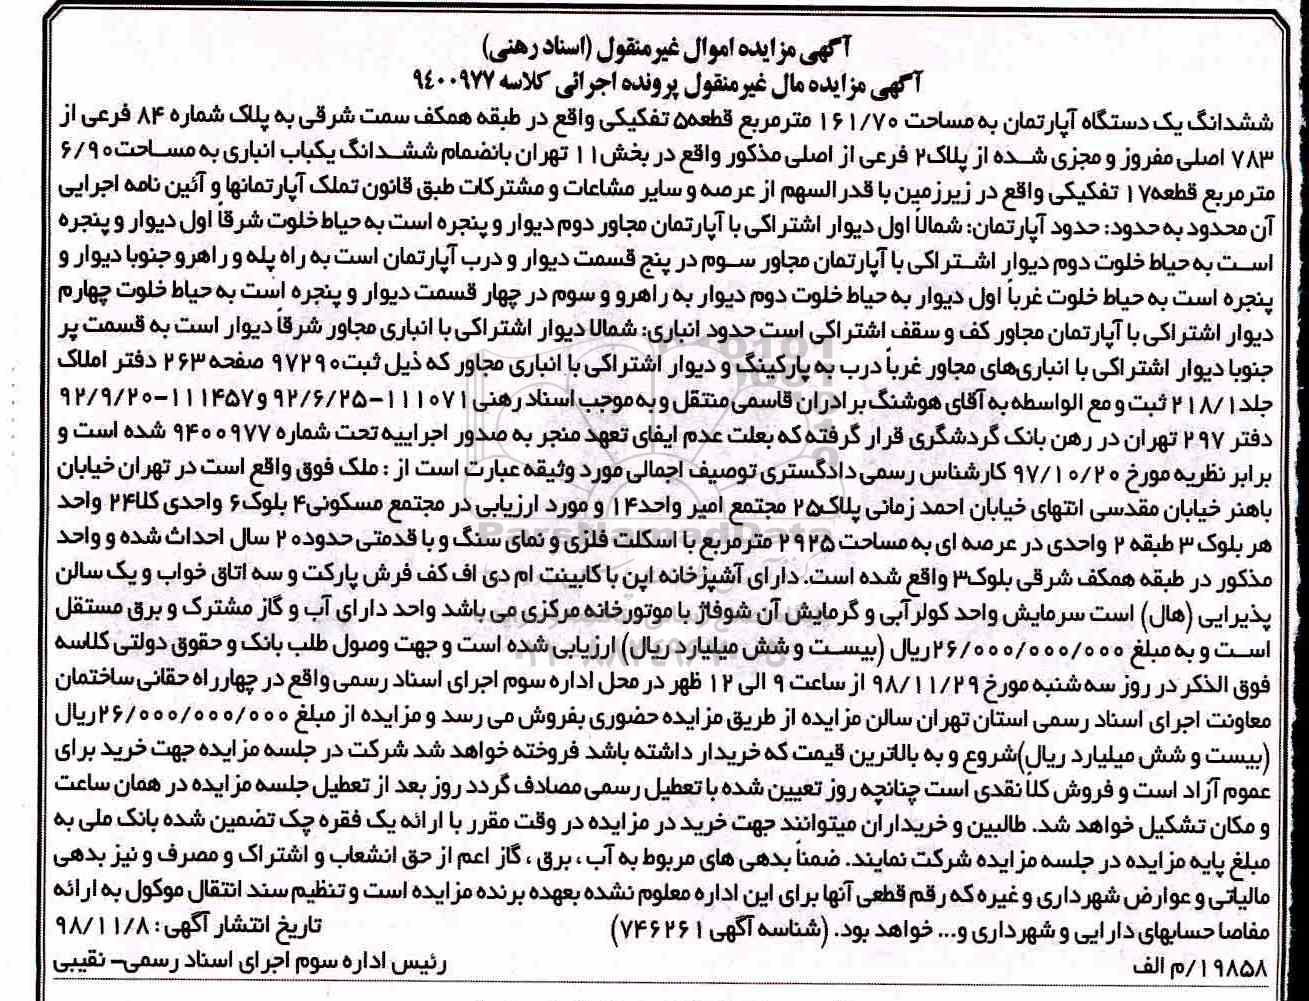 آگهی مزایده اموال غیرمنقول (اسناد رهنی)
آگهی مزایده مال غیرمنقول پرونده اجرائی کلاسه ۹٤۰۰۹۷۷
ششدانگ یک دستگاه آپارتمان به مساحت ۱۶۱/۷۰ مترمربع قطعه۵ تفکیکی واقع در طبقه همکف سمت شرقی به پلاک شماره ۸۴ فرعی از
۷۸۳ اصلی مفروز و مجزی شده از پلاک۲ فرعی از اصلی مذکور واقع در بخش۱۱ تهران بانضمام ششدانگ یکباب انباری به مساحت۶/۹۰
مترمربع قطعه۱۷ تفکیکی واقع در زیرزمین با قدرالسهم از عرصه و سایر مشاعات و مشترکات طبق قانون تملک آپارتمانها و آئین نامه اجرایی
آن محدود به حدود: حدود آپارتمان: شمالاً اول دیوار اشتراکی با آپارتمان مجاور دوم دیوار و پنجره است به حیاط خلوت شرقاً اول دیوار و پنجره
است به حیاط خلوت دوم دیوار اشتراکی با آپارتمان مجاور سوم در پنج قسمت دیوار و درب آپارتمان است به راه پله و راهرو جنوبا دیوار و
پنجره است به حیاط خلوت غرباً اول دیوار به حیاط خلوت دوم دیوار به راهرو و سوم در چهار قسمت دیوار و پنجره است به حیاط خلوت چهارم
دیوار اشتراکی با آپارتمان مجاور کف و سقف اشتراکی است حدود انباری: شمالا دیوار اشتراکی با انباری مجاور شرقاً دیوار است به قسمت پر
جنوبا دیوار اشتراکی با انباری‌های مجاور غرباً درب به پارکینگ و دیوار اشتراکی با انباری مجاور که ذیل ثبت۹۷۲۹۰ صفحه۲۶۳ دفتر املاک
جلد۲۱۸/۱ ثبت و مع الواسطه به آقای هوشنگ برادران قاسمی منتقل و به موجب اسناد رهنی۱۱۱۰۷۱-۹۲/۶/۲۵ و۱۱۱۴۵۷-۹۲/۹/۲۰
دفتر ۲۹۷ تهران در رهن بانک گردشگری قرار گرفته که بعلت عدم ایفای تعهد منجر به صدور اجراییه تحت شماره ۹۴۰۰۹۷۷ شده است و
برابر نظریه مورخ ۹۷/۱۰/۲۰ کارشناس رسمی دادگستری توصیف اجمالی مورد وثیقه عبارت است از : ملک فوق واقع است در تهران خیابان
باهنر خیابان مقدسی انتهای خیابان احمد زمانی پلاک۲۵ مجتمع امیر واحد۱۴ و مورد ارزیابی در مجتمع مسکونی۴ بلوک۶ واحدی کلا۲۴ واحد
هر بلوک ۳ طبقه ۲ واحدی در عرصه ای به مساحت ۲۹۲۵ مترمربع با اسکلت فلزی و نمای سنگ و با قدمتی حدود۲۰ سال احداث شده و واحد
مذکور در طبقه همکف شرقی بلوک۳ واقع شده است. دارای آشپزخانه اپن با کابینت ام دی اف کف فرش پارکت و سه اتاق خواب و یک سالن
پذیرایی (هال) است سرمایش واحد کولرآبی و گرمایش آن شوفاژ با موتورخانه مرکزی می باشد واحد دارای آب و گاز مشترک و برق مستقل
است و به مبلغ ۲۶/۰۰۰/۰۰۰/۰۰۰ریال (بیست و شش میلیارد ریال) ارزیابی شده است و جهت وصول طلب بانک و حقوق دولتی کلاسه
فوق الذکر در روز سه شنبه مورخ ۹۸/۱۱/۲۹ از ساعت ۹ الی ۱۲ ظهر در محل اداره سوم اجرای اسناد رسمی واقع در چهارراه حقانی ساختمان
معاونت اجرای اسناد رسمی استان تهران سالن مزایده از طریق مزایده حضوری بفروش می رسد و مزایده از مبلغ ۲۶/۰۰۰/۰۰۰/۰۰۰ریال
(بیست و شش میلیارد ریال)شروع و به بالاترین قیمت که خریدار داشته باشد فروخته خواهد شد شرکت در جلسه مزایده جهت خرید برای
عموم آزاد است و فروش کلا نقدی است چنانچه روز تعیین شده با تعطیل رسمی مصادف گردد روز بعد از تعطیل جلسه مزایده در همان ساعت
و مکان تشکیل خواهد شد. طالبین و خریداران میتوانند جهت خرید در مزایده در وقت مقرر با ارائه یک فقره چک تضمین شده بانک ملی به
مبلغ پایه مزایده در جلسه مزایده شرکت نمایند. ضمناً بدهی های مربوط به آب ، برق ، گاز اعم از حق انشعاب و اشتراک و مصرف و نیز بدهی
مالیاتی و عوارض شهرداری و غیره که رقم قطعی آنها برای این اداره معلوم نشده بعهده برنده مزایده است و تنظیم سند انتقال موکول به ارائه
مفاصا حسابهای دارایی و شهرداری و... خواهد بود. (شناسه آگهی ۷۴۶۲۶۱) تاریخ انتشار آگهی: ۹۸/۱۱/۸
۱۹۸۵۸/م الف رئیس اداره سوم اجرای اسناد رسمی- نقیبی
ParsNamadData